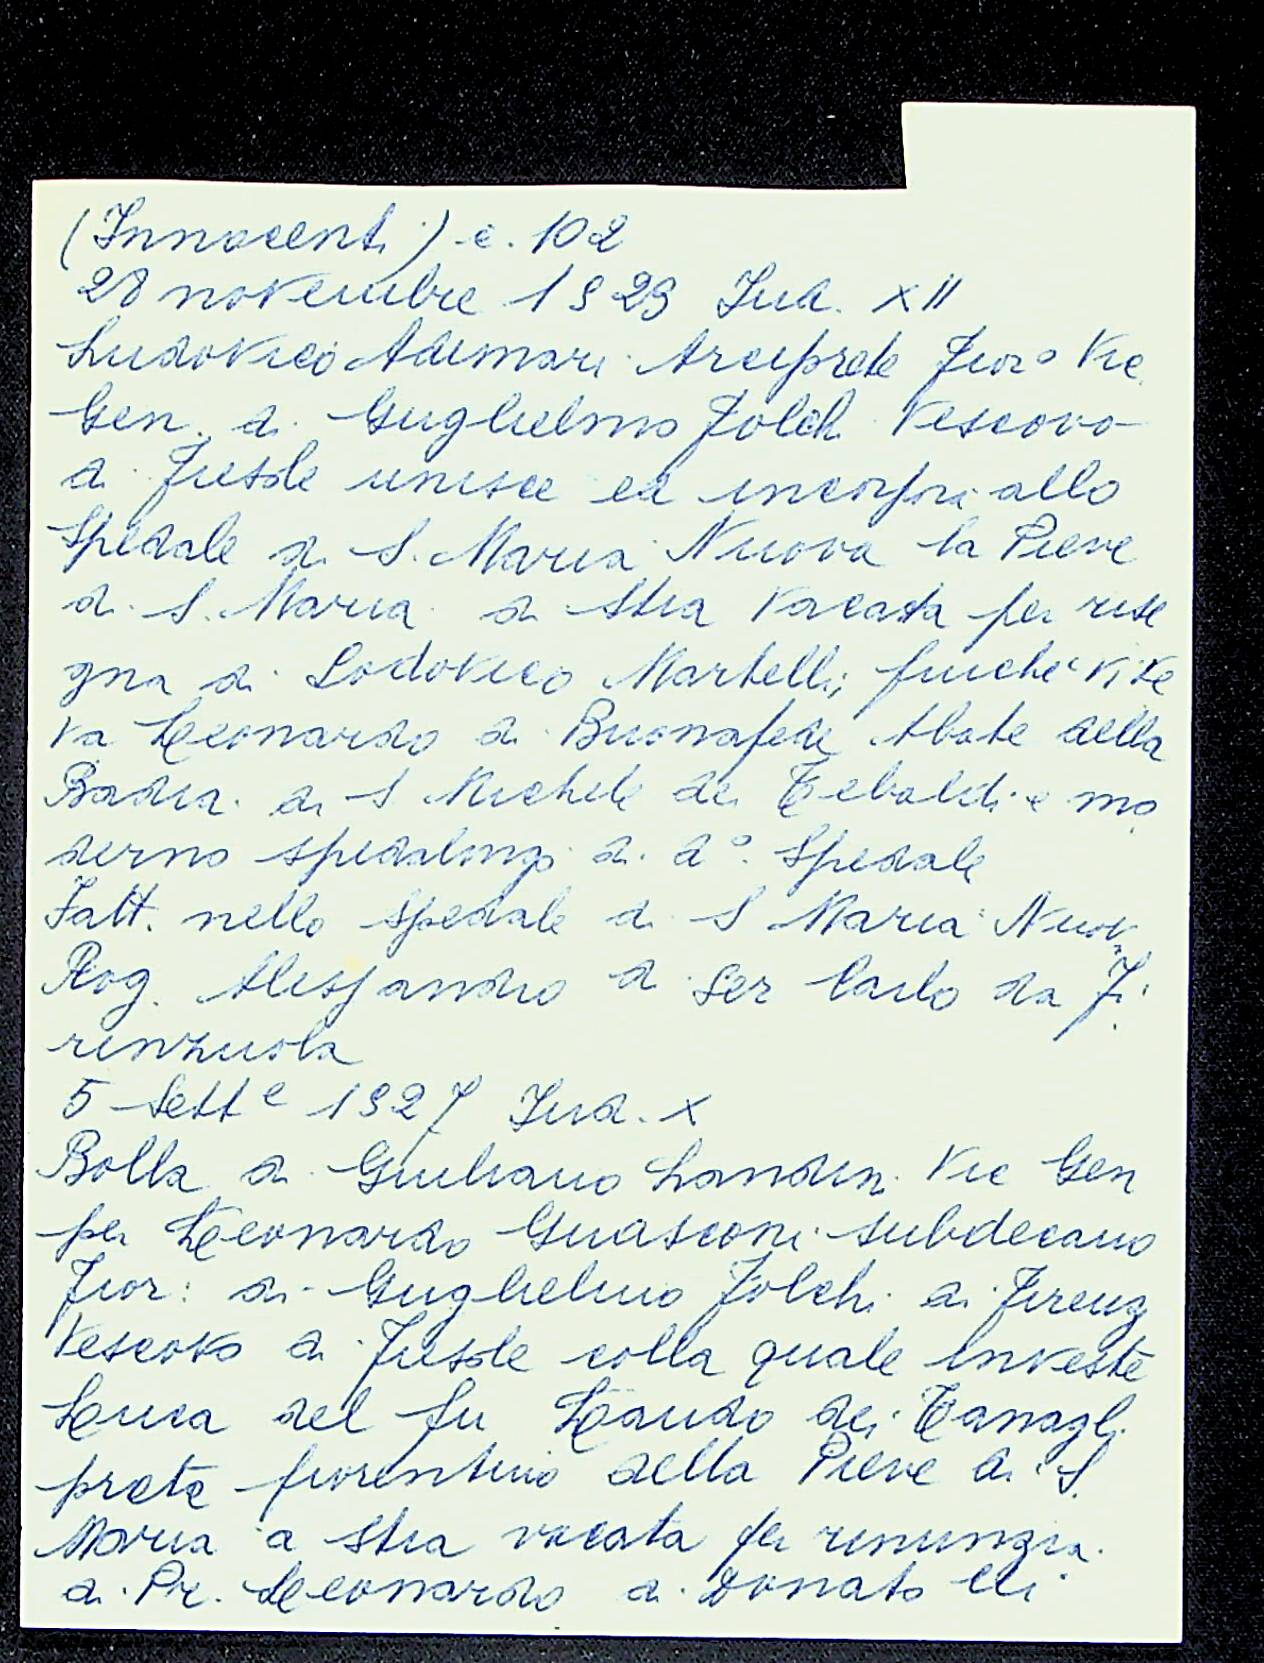 (Innocenti) c. 102
28 novembre 1523 Ind. XII
Ludovico Adimari Arciprete Fior.o Vic
Gen. di Guglielmo Folchi Vescovo
di Fiesole unisce ed incorpora allo
Spedale di S. Maria Nuova la Pieve
di S. Maria di Stia vacata per rise
gna di Lodovico Martelli; finché vive
va Leonardo di Buonafede Abate della
Badia di S Michele dei Tebaldi e mo
derno spedalingo di d.o Spedale
Fatt. nello Spedale di S Maria Nuov
Rog. Alessandro di Ser Carlo da Fi
renzuola
5 Sett e 1527 Ind. X
Bolla di Giuliano Landini Vic Gen
per Leonardo Guasconi subdecano
Fior: di Guglielmo Folchi di Firenz
Vescovo di Fiesole colla quale investe
Luca del fu Lando dei Tanagli
prete fiorentino della Pieve di S.
Maria a Stia vacata per rinunzia
di Pr. Leonardo di Donato